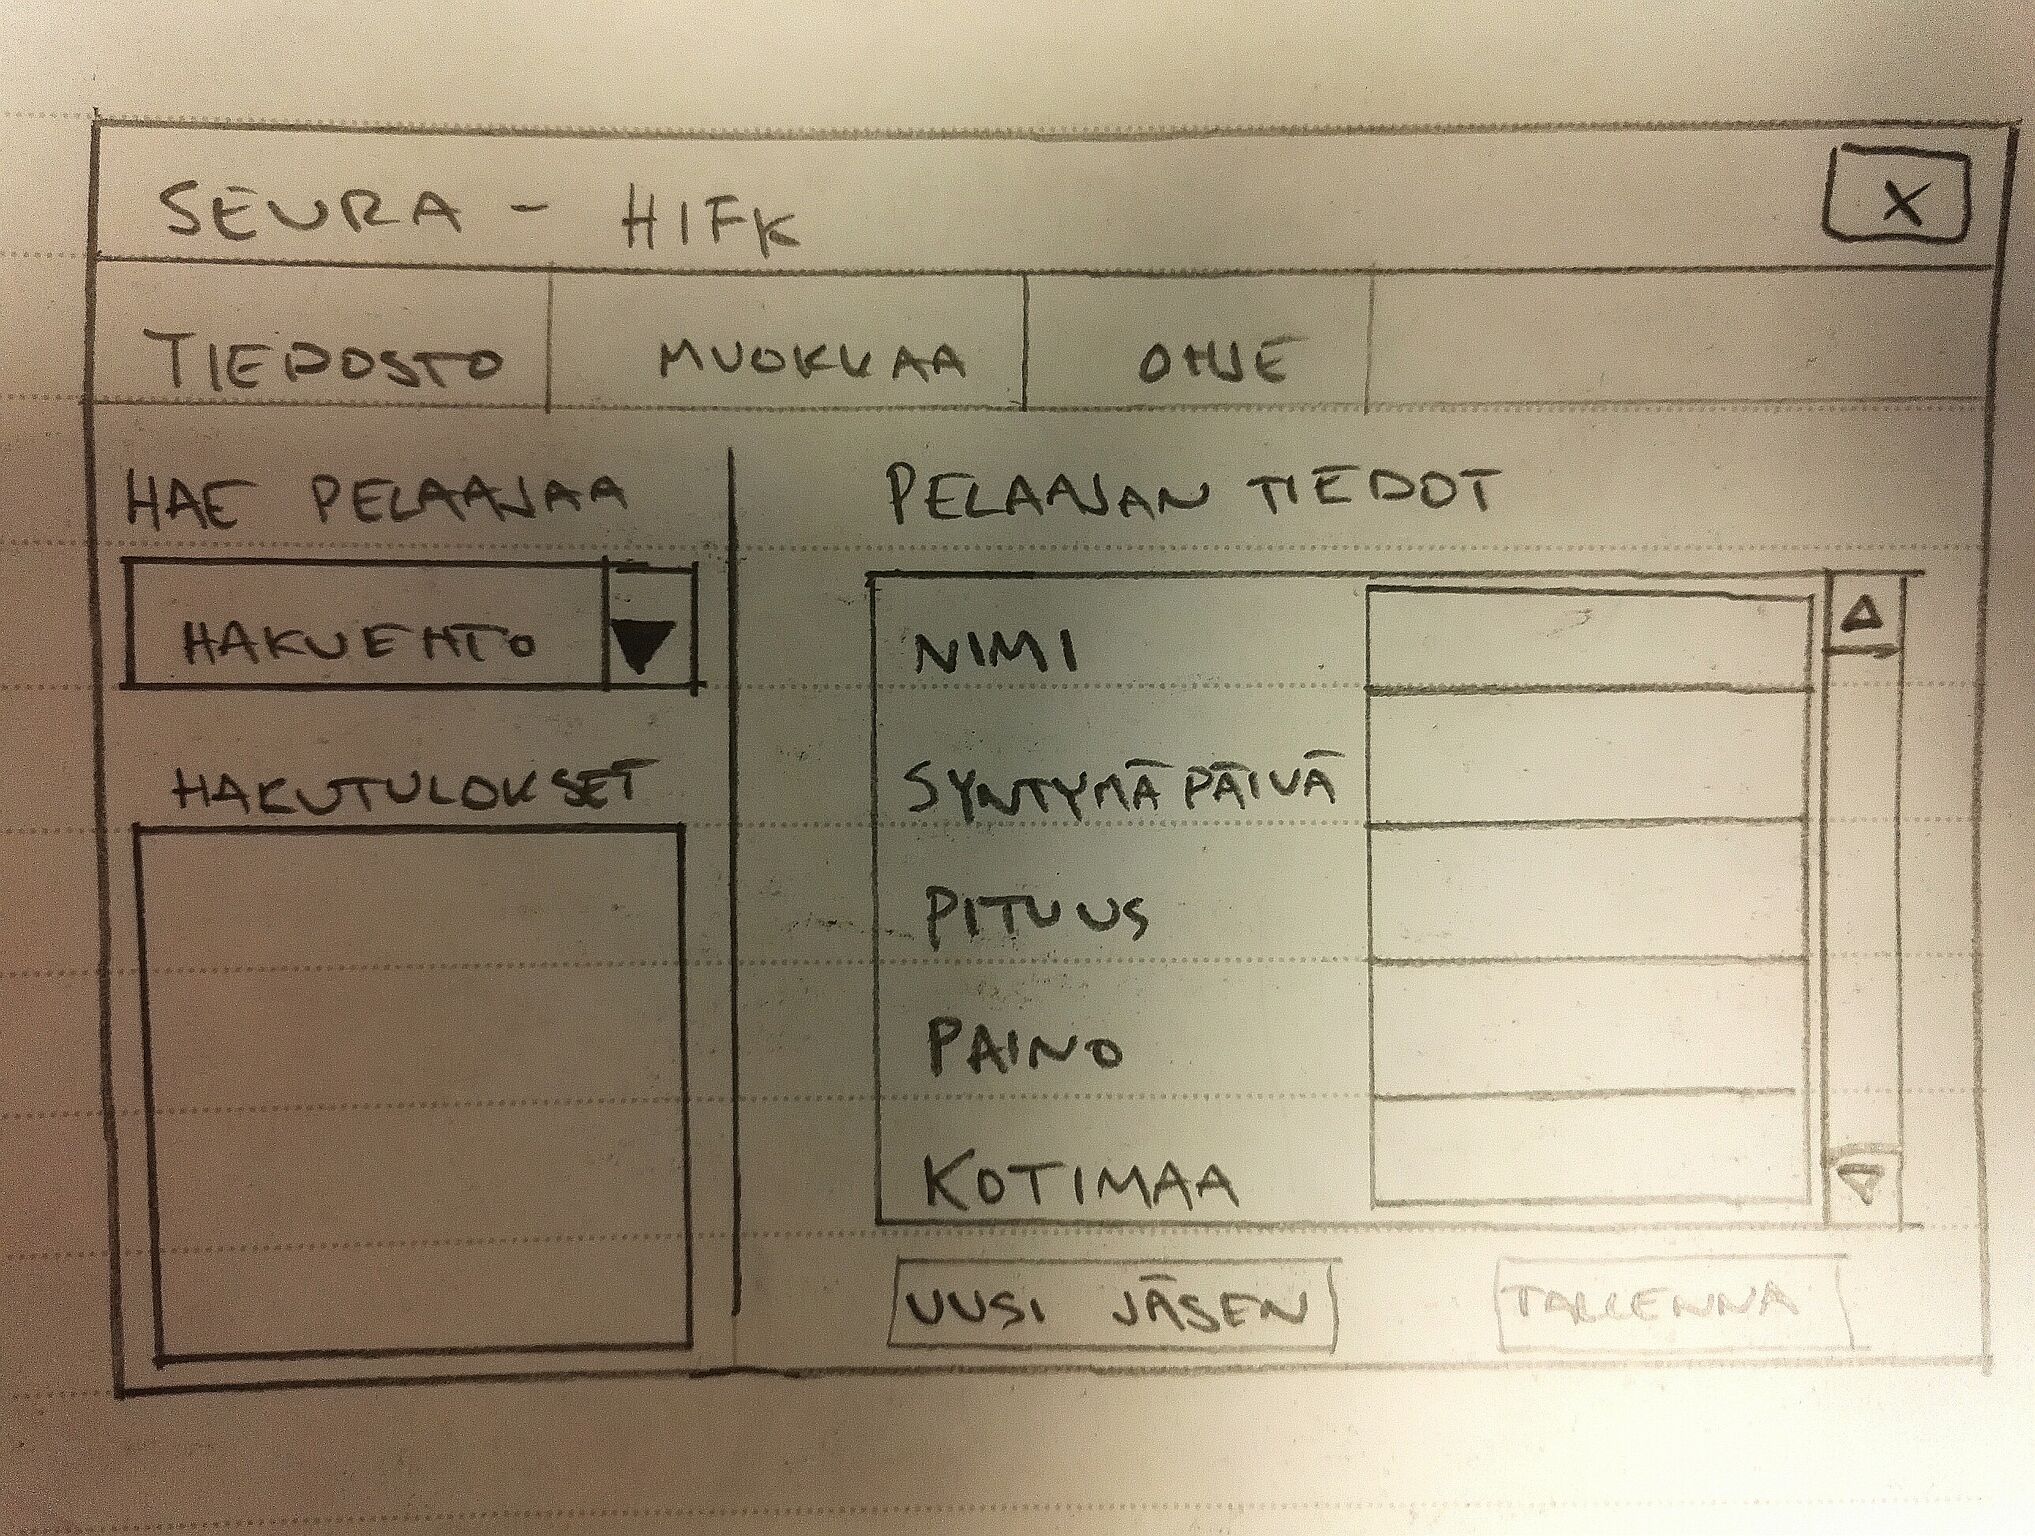 SEURA - HIFK
X
TIEDOSTO MUOKKAA OHJE
HAE PELAAJAA
HAKUEHTO
HAKUTULOKSET
PELAAJAN TIEDOT
NIMI
SYNTYMÄPÄIVÄ
PITUUS
PAINO
KOTIMAA
UUSI JÄSEN
TALLENNA